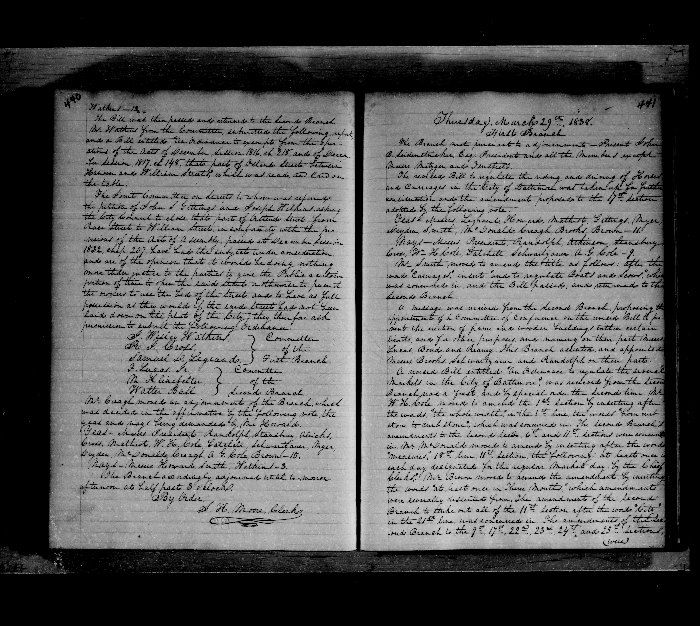 440
Watkins—13.
The Bill was then passed and returned to the Second Branch
Mr. Watkins from the Committee, submitted the following report,
and a Bill entitled "An Ordinance to exempt from the oper-
ations of the Acts of December Session 1816, ch. 218 and of Decem-
ber Session 1817, ch. 148, that part of Ostend Street between
Hanover and William Streets, which was read and laid on
the table.
The Joint Committee on Streets to whom was referred
the petition of John S. Gittings and Joseph asking
the City Council to close that part of Ostend Street from
Race Street to William Street, in conformity with the pro-
visions of the Act of Assembly, passed at December Session
1832, chap 207, have had the subject under consideration
and are of the opinion that it would be doing nothing
more than justice to the parties to give the Public a certain
portion of time to open the said Street, otherwise to permit
the owners to use the bed of the Street and to have as full
possession as they would if the said Street had not been
laid down on the plat of the City; they therefore ask
permission to submit the following Ordinance.
S. Wesley Watkins } Committee
R. S. Cross } of the
Samuel D. Legrand } First Branch
J. Lucas Jr. } Committee
M. } of the
Walter Ball } Second Branch
Mr. Creagh moved an adjournment of the Branch, which
was decided in the affirmative by the following vote, the
yeas and nays being demanded by Mr. Howard.
Yeas—Messrs President, Randolph, Stansbury,
Cross, Medtart, W. H. Cole, Fatchell, Myer,
Snyder, McDonald, Creagh, A. G. Cole, Brown—15.
Nays—Messrs Howard, Smith, Watkins—3.
The Branch accordingly adjourned until to-morrow
afternoon at half past 3 o'clock.
By Order,
S. H. Moore, Clerk
441
Thursday, March 29th, 1838.
First Branch
The Branch met pursuant to adjournment—Present John
Esq. President and all the Members except
Messrs and
The revised Bill to regulate the riding and driving of Horses
and Carriages in the City of Baltimore was taken up for further
consideration and the amendment proposed to the 17th section
adopted by the following vote.
Yeas—Messrs Howard, Medtart, Gittings, Myer,
Snyder, Smith, McDonald, Creagh, Brooks, Brown—10.
Nays—Messrs President, Randolph, Stansbury,
Cross, W. H. Cole, Fatchell, A. G. Cole—9.
Mr. Smith moved to amend the title as follows: after the
word "Carriages", insert "and to regulate Boats and Scows", which
was concurred in, and the Bill passed, and returned to the
Second Branch.
A message was received from the Second Branch, proposing the
appointment of a Committee of Conference on the revised Bill to pre-
vent the erection of frame and wooden buildings within certain
limits, and for other purposes and naming on their part Messrs
Lucas, Bond and Keaney. This Branch acceded, and appointed
Messrs Brooks, and Randolph on their part.
A revised Bill entitled "An Ordinance to regulate the several
Markets in the City of Baltimore" was received from the Second
Branch, was a first and by special order the second time. Mr.
W. H. Cole moved to amend the 1st section by inserting after
the words "the whole width", in the line, the words "from curb
stone to curb stone", which was concurred in. The Second Branch's
amendments to the Second Section, 6th and 11th sections were concurred
in. Mr. McDonald moved to amend by inserting after the words
"measures", 18th line 11th section, the following: "at least once in
each day designated for the regular Market day by the Chief
Clerk". Mr. Brown moved to amend the amendment by inserting
the words "at least once in three Months", which amendments
were severally dissented from. The amendment of the Second
Branch to strike out all of the 11th section after the word "City"
in the 21st line was concurred in. The amendments of the Sec-
ond Branch to the 9th, 17th, 22nd, 23rd, 24th, and 25th sections,
(were)